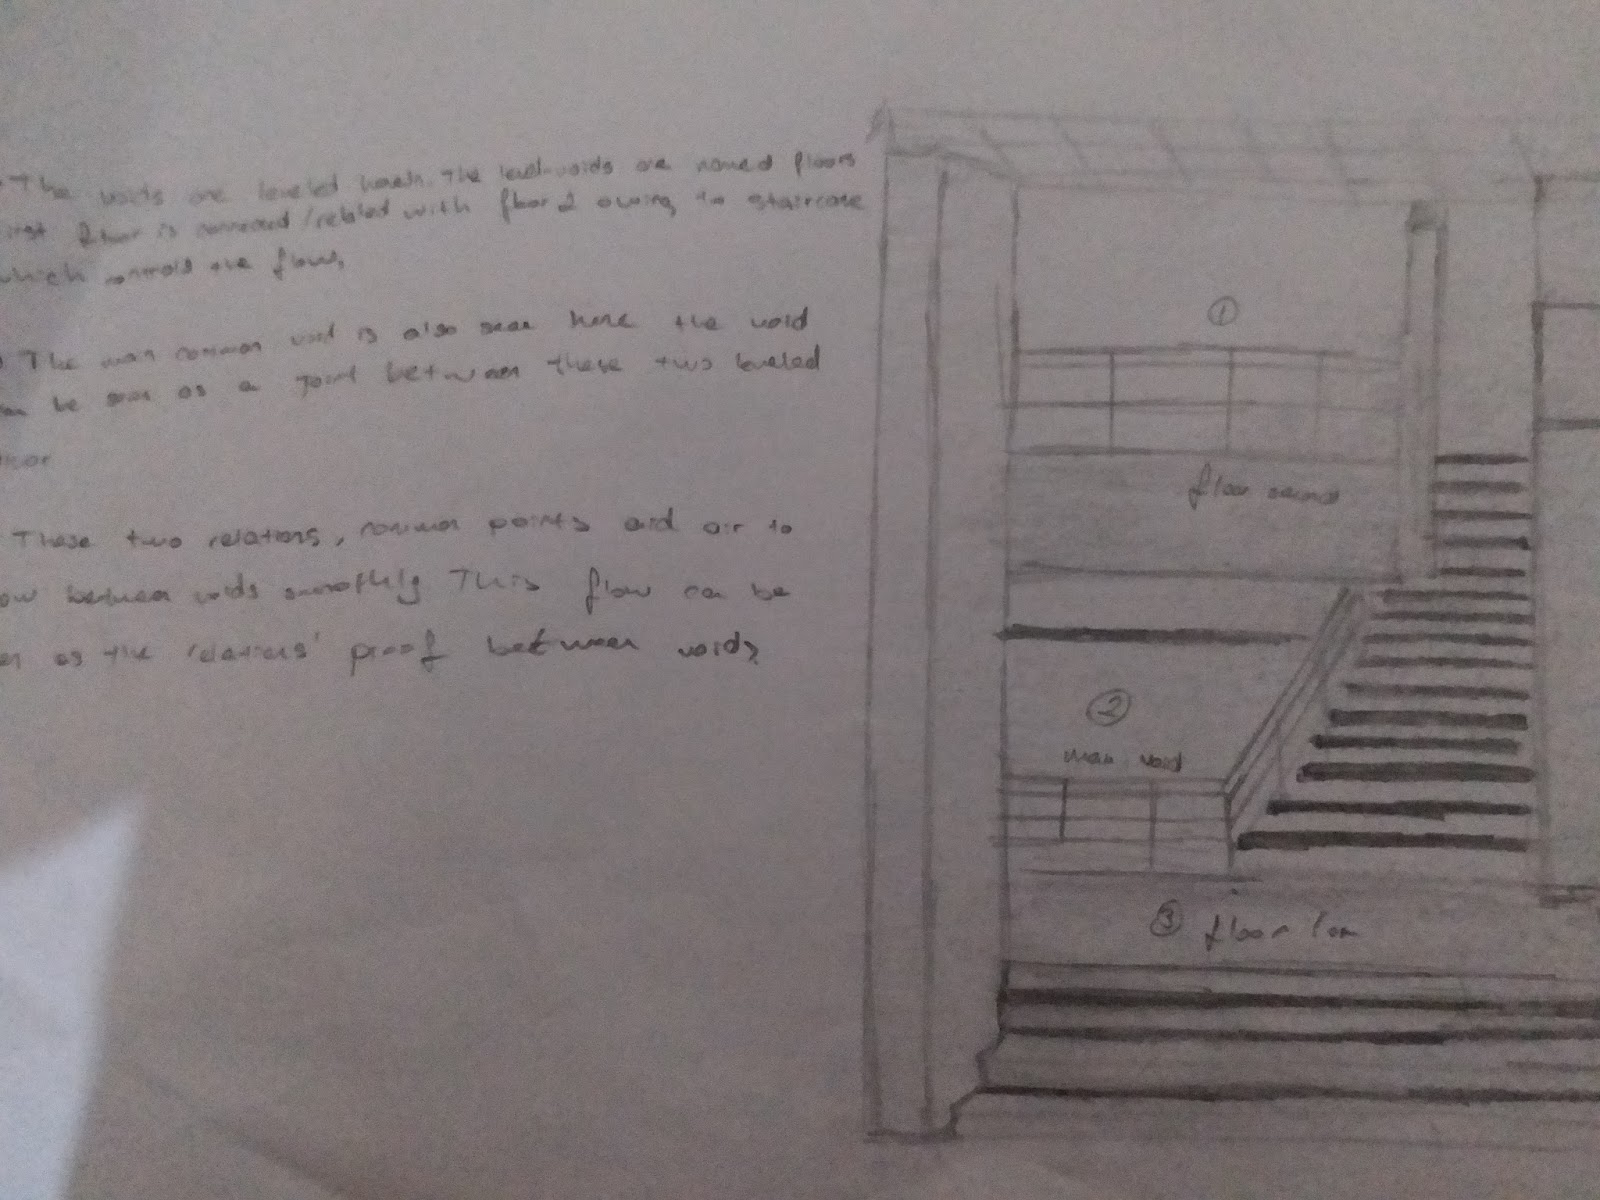 The voids are leveled here. The level-voids are named floors
floor is connected/related with floor 2 owing to staircase
which controls the flow,
The main common void is also seen here the void
be seen as a joint between these two leveled
These two relations, common points aid air to
between voids smoothly This flow can be
as the relations' proof between voids
①
floor second
②
main void
③ floor